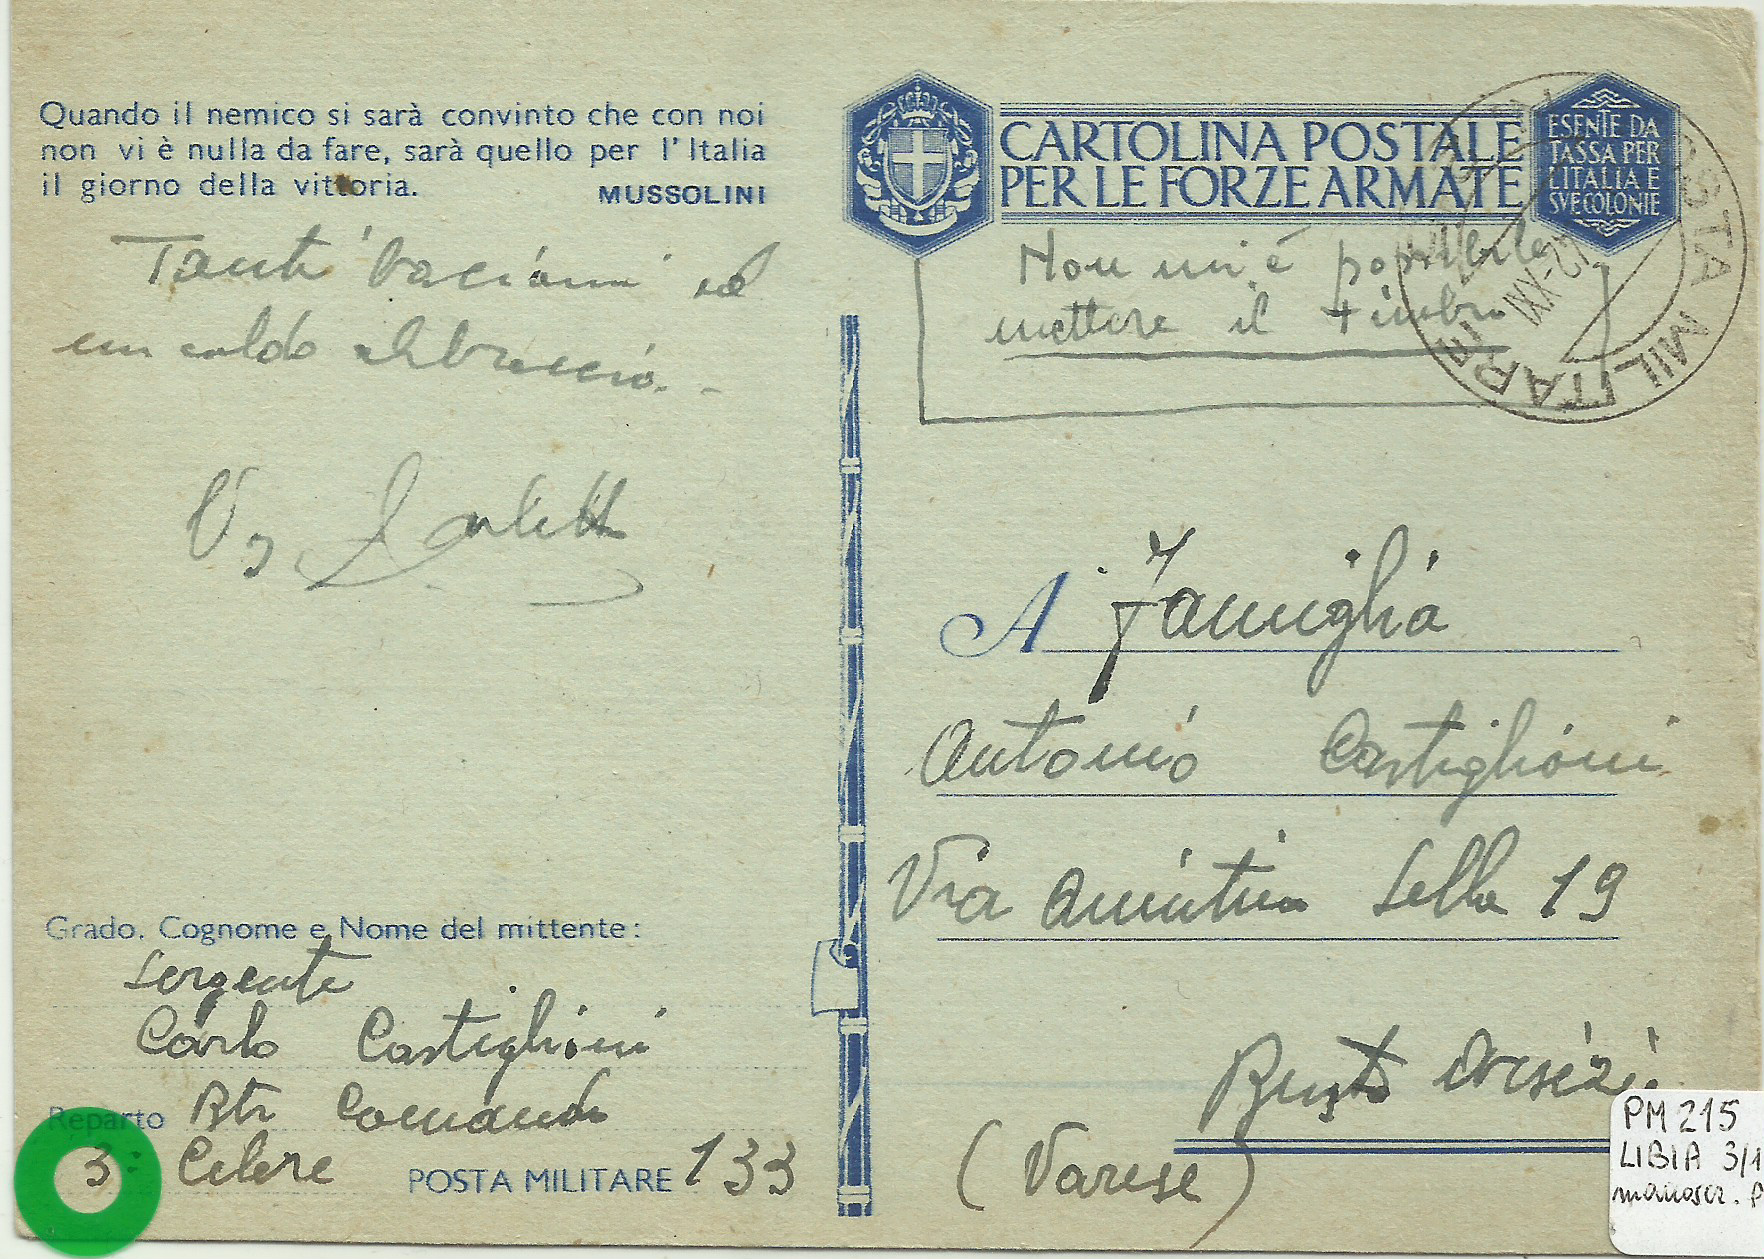 Quando il nemico si sarà convinto che con noi
non vi è nulla da fare, sarà quello per l'Italia
il giorno della vittoria.
MUSSOLINI
Tanti bacioni ed
un caldo abbraccio.
CARTOLINA POSTALE
PER LE FORZE ARMATE
ESENTE DA
TASSA PER
L'ITALIA E
SVE COLONIE
POSTA MILITARE
12-XXI
Non mi è possibile
mettere il timbro
A Famiglia
Antonio Castiglioni
Via Quintino Sella 19
Busto Arsizio
(Varese)
Grado, Cognome e Nome del mittente:
Sergente
Carlo Castiglioni
Reparto Btr Comando
3° Celere POSTA MILITARE 133
PM 215
LIBIA 3/1
manoscr. P